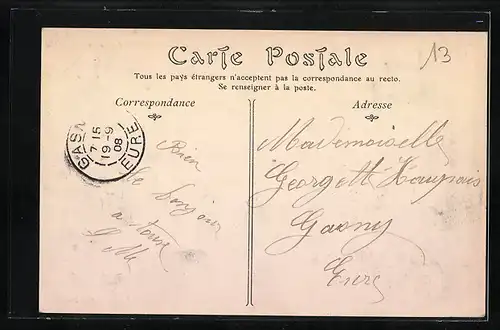 Carte Postale
13
Tous les pays étrangers n'acceptent pas la correspondance au recto.
Se renseigner à la poste.
Correspondance
Adresse
GASNY
7-15
19-9
08
EURE
Bien
le bonjour
a tous
Mademoiselle
Georgette
Gasny
Eure